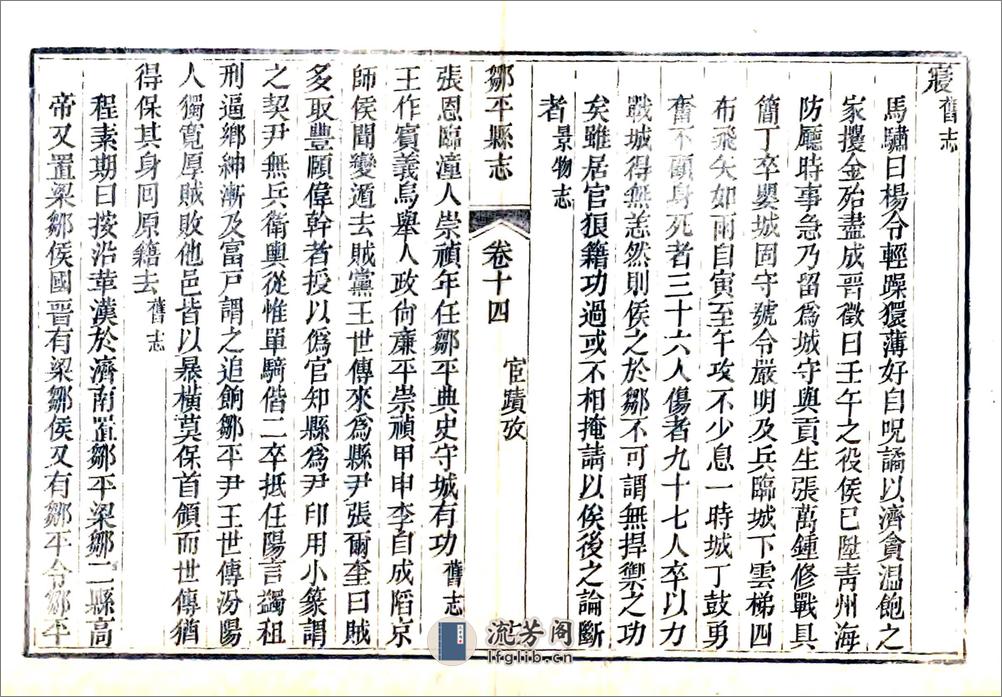 寢舊志
馬驌曰楊令輕躁獧薄好自呪譎以濟貪温飽之
家攫金殆盡成晋徵曰壬午之役侯已陞青州海
防廳時事急乃留爲城守與貢生張萬鍾修戰具
簡丁卒嬰城固守號令嚴明及兵臨城下雲梯四
布飛矢如雨自寅至午攻不少息一時城丁鼓勇
奮不顧身死者三十六人傷者九十七人卒以力
戰城得無恙然則侯之於鄒不可謂無捍禦之功
矣雖居官狼籍功過或不相掩請以俟後之論斷
者景物志
鄒平縣志
卷十四
宦蹟攷
張恩臨潼人崇禎年任鄒平典史守城有功舊志
王作賓義烏舉人政尙廉平崇禎甲申李自成䧟京
師侯聞變遁去賊黨王世傳來爲縣尹張爾奎曰賊
多取豐頤偉幹者授以僞官知縣爲尹印用小篆謂
之契尹無兵衛輿從惟單騎偕二卒抵任陽言蠲租
刑逼鄉紳漸及富戸謂之追餉鄒平尹王世傳汾陽
人獨寛厚賊敗他邑皆以暴橫莫保首領而世傳猶
得保其身囘原籍去舊志
程素期曰按沿革漢於濟南置鄒平梁鄒二縣高
帝又置梁鄒侯國晋有梁鄒侯又有鄒平令鄒平
流芳阁
lfglib.cn